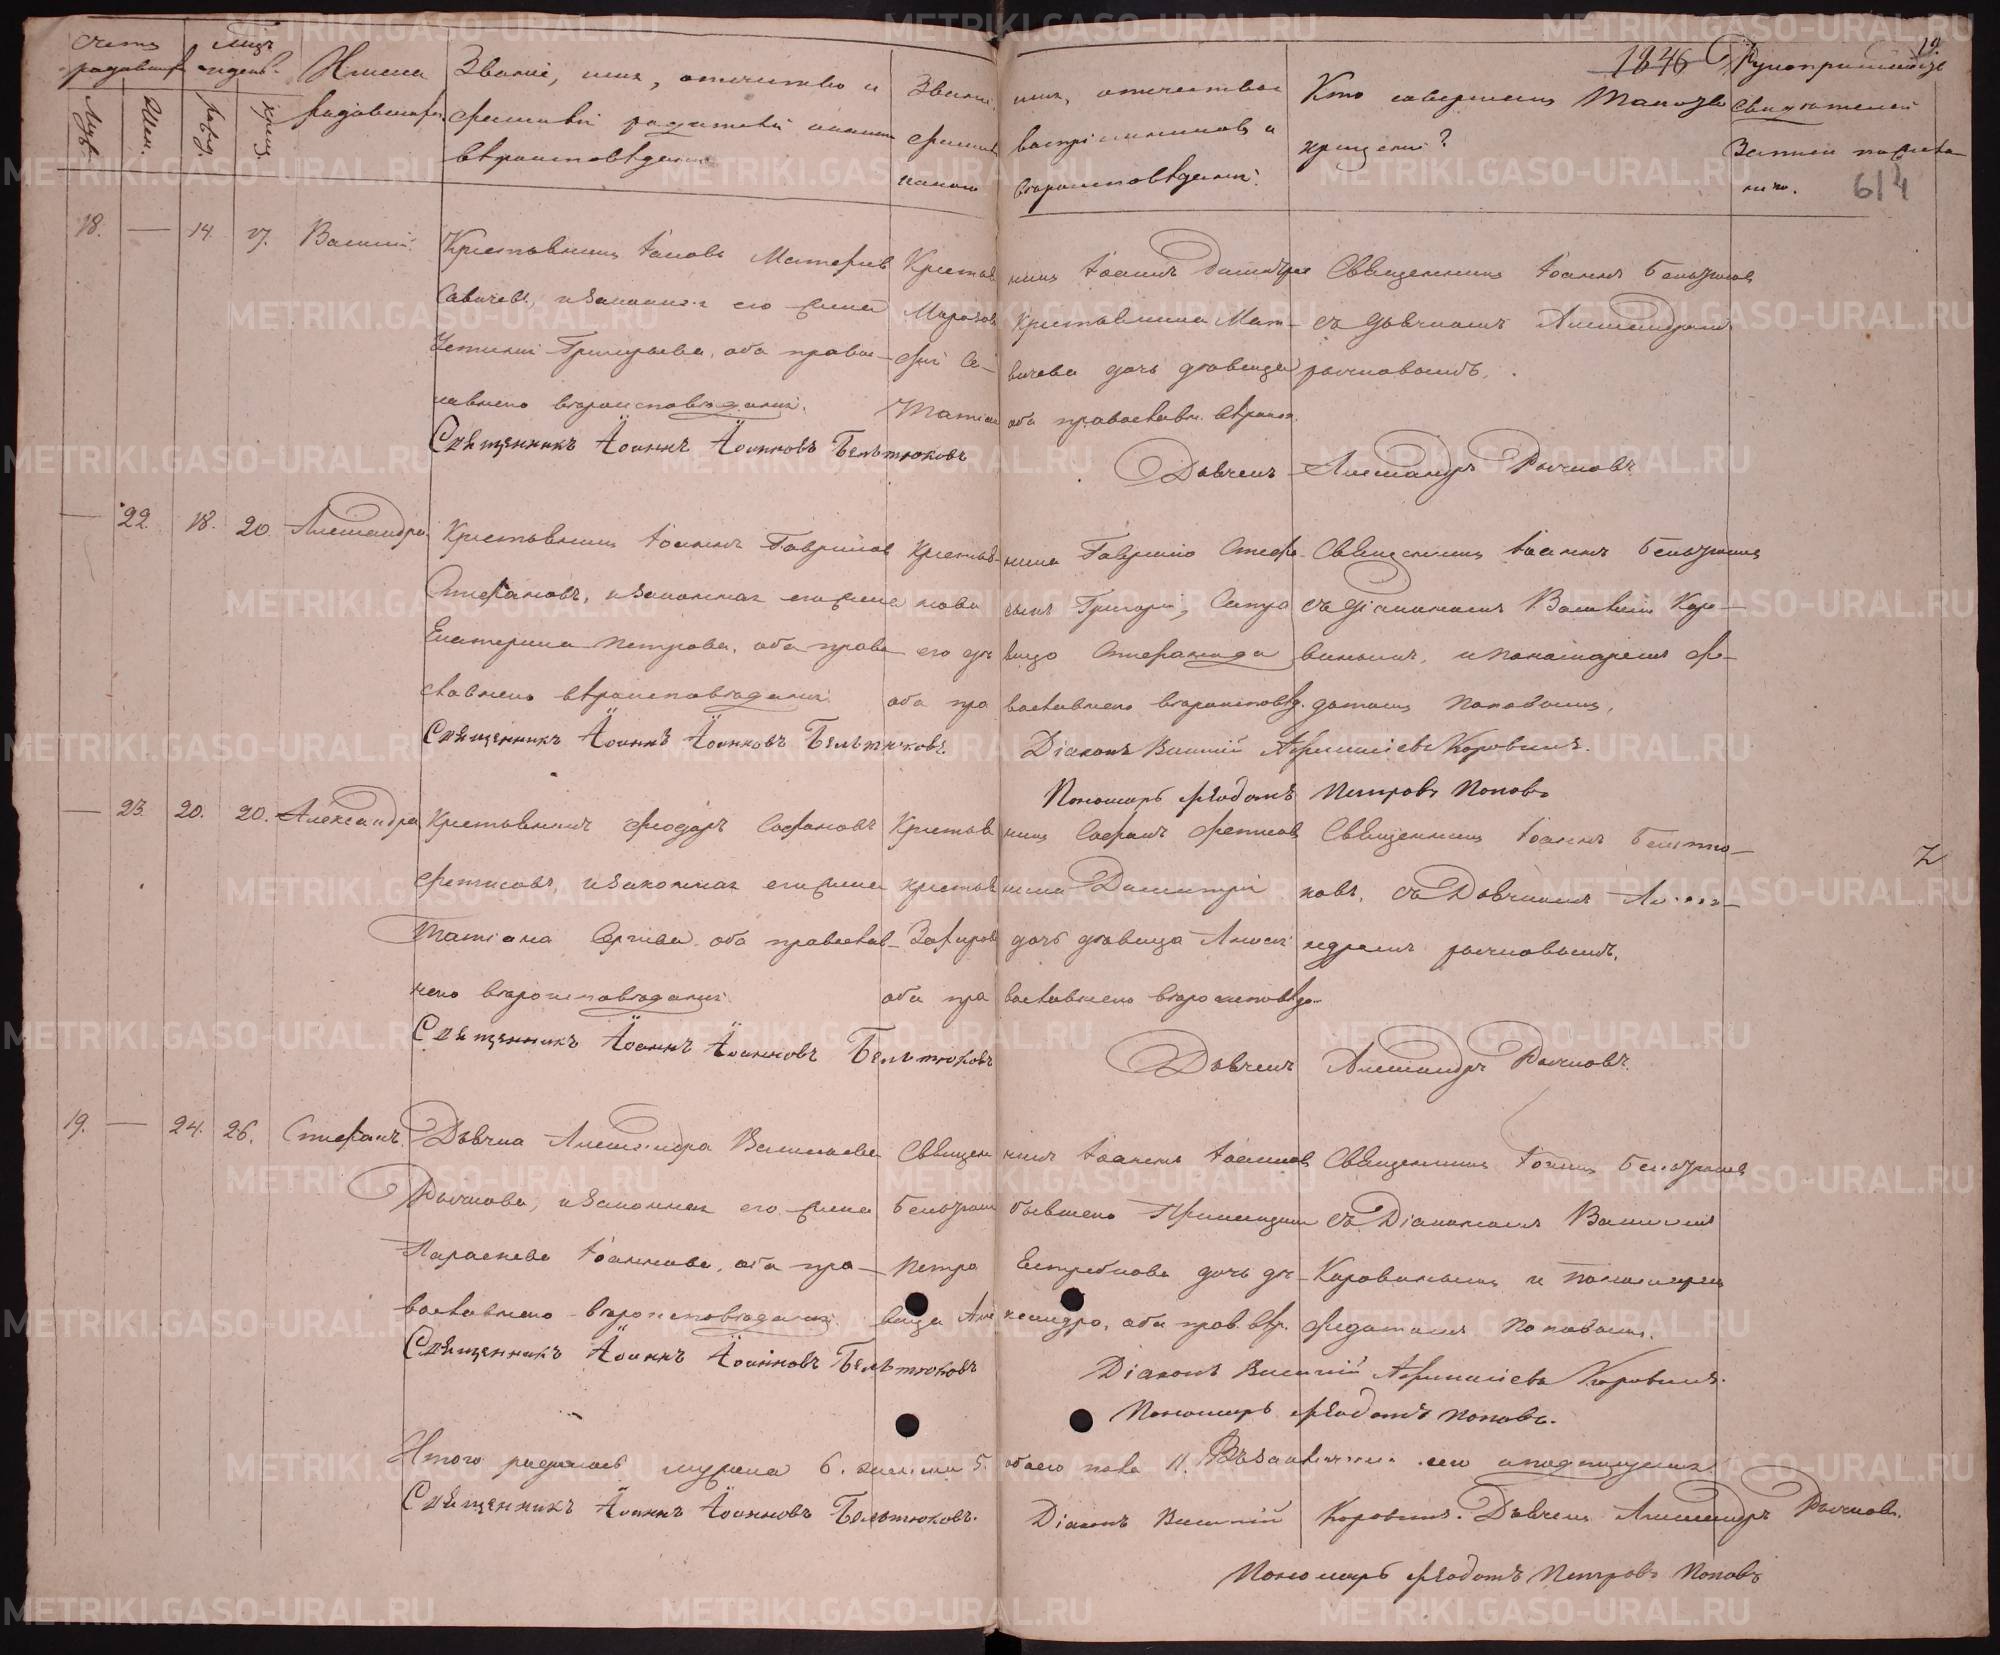 1846
19.
614
Счетъ
родившихся
Муж.
Жен.
Мѣсяцъ
и день
рожд.
крещ.
Имена
родившихся
Званіе, имя, отчество и
фамилія родителей какого
вѣроисповѣданія
Званіе,
фамилія
какого
имя, отчество
воспріемниковъ и
вѣроисповѣданія.
Кто совершалъ таинство
крещенія?
Рукоприкладство
свидѣтелей
записи по жела-
нію.
18. — 14. 17. Василій.
Крестьянинъ Іаковъ Матфіевъ
Савичевъ, и законная его жена
Григорьева, оба право-
славнаго вѣроисповѣданія.
Священникъ Іоаннъ Іоанновъ Бельтюковъ
Крестья
нинъ Іоаннъ
Морозовъ Крестьянина Мат-
фія Са- вичева дочь дѣвица
оба православн. вѣроисп.
Священникъ Іоаннъ Бельтюковъ
съ дьячкомъ Александромъ
Рычковымъ.
Дьячекъ Александръ Рычковъ
— 22. 18. 20. Александра
Крестьянинъ Іоаннъ Гавриловъ
Стефановъ, и законная его жена
Екатерина Петрова, оба право
славнаго вѣроисповѣданія
Священникъ Іоаннъ Іоанновъ Бельтюковъ.
Крестья- нина Гавріила Стефа-
нова сынъ Григорій,
его дѣ вица Стефанида
оба пра вославнаго вѣроисповѣд.
Священникъ Іоаннъ Бельтюковъ
съ діакономъ Василіемъ Коро-
винымъ, и пономаремъ Фе-
дотомъ Поповымъ.
Діаконъ Василій Афанасіевъ Коровинъ.
Пономарь Ѳедотъ Петровъ Поповъ
— 23. 20. 20. Александра
Крестьянинъ Феодоръ Софоновъ
Фетисовъ, и законная его жена
Татіана Сергіева оба православ-
наго вѣроисповѣданія
Священникъ Іоаннъ Іоанновъ Бельтюковъ
Крестья нинъ Софонъ Фетисовъ
крестья нина Димитрія
дочь дѣвица
оба пра вославнаго вѣроисповѣд.
Священникъ Іоаннъ Бельтю-
ковъ, съ Дьячкомъ Алекса-
ндромъ Рычковымъ.
Дьячекъ Александръ Рычковъ.
19. — 24. 26. Стефанъ.
Дьячка Александра Васильева
Рычкова, и законная его жена
Параскева Іоаннова, оба пра-
вославнаго вѣроисповѣданія
Священникъ Іоаннъ Іоанновъ Бельтюковъ
Священ никъ Іоаннъ Іоанновъ
Бельтюковъ бывшаго
Петра дочь дѣ-
вица Але ксандра, оба прав. вѣр.
Священникъ Іоаннъ Бельтюковъ
съ Діакономъ Василіемъ
Коровинымъ и пономаремъ
Федотомъ Поповымъ.
Діаконъ Василій Афанасіевъ Коровинъ.
Пономарь Ѳедотъ Поповъ.
Итого родилось мужска 6. женска 5. обоего пола 11.
Священникъ Іоаннъ Іоанновъ Бельтюковъ.
Діаконъ Василій Коровинъ. Дьячекъ Александръ Рычковъ.
Пономарь Ѳедотъ Петровъ Поповъ
METRIKI.GASO-URAL.RU